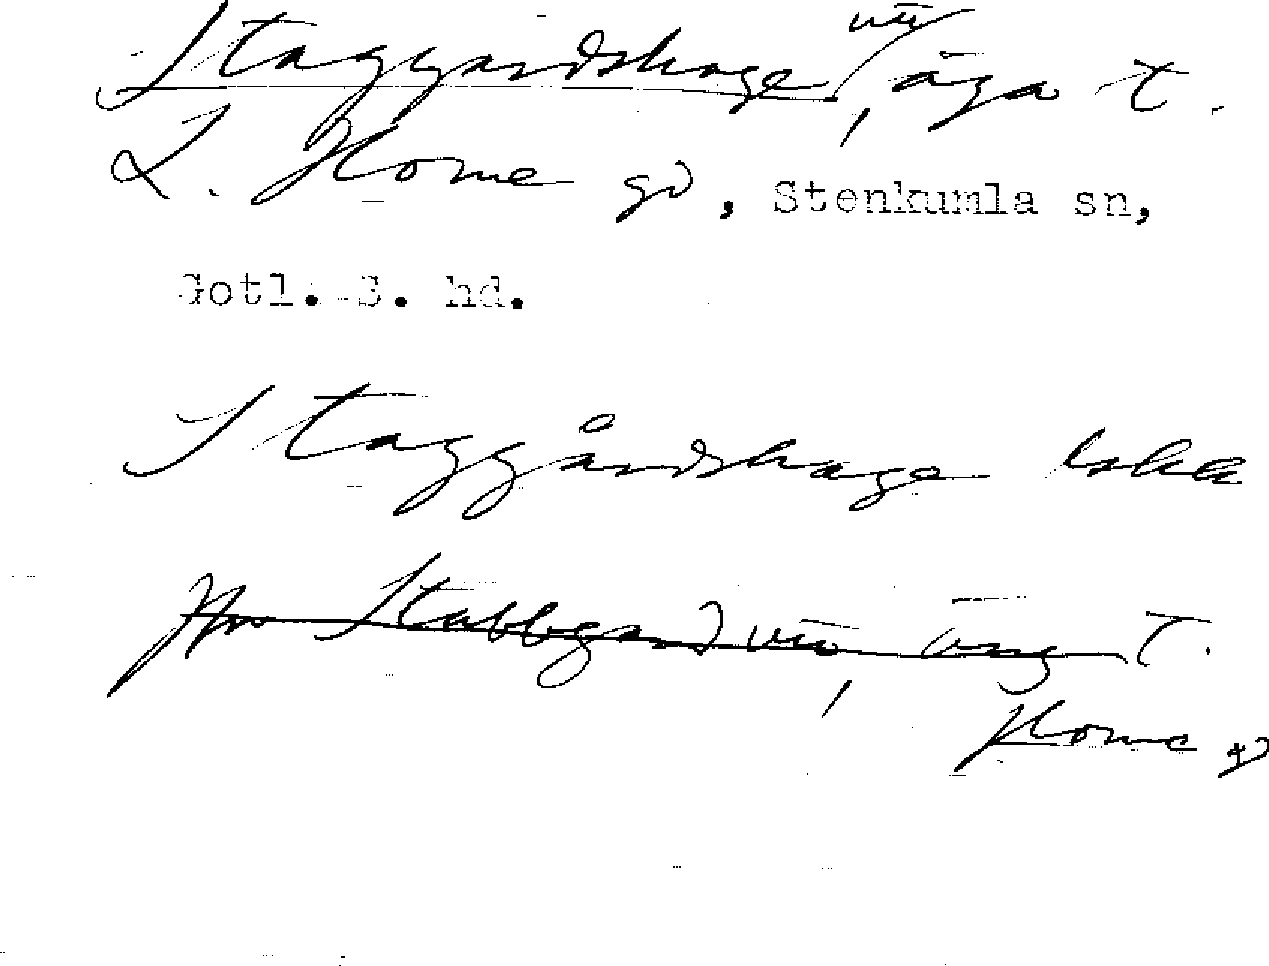 Staggardshage, äga t.
L. Home gd, Stenkumla sn,
Gotl. S. hd.
Staggårdshage
Jfr Stabbgard vät, äng t.
Home gd